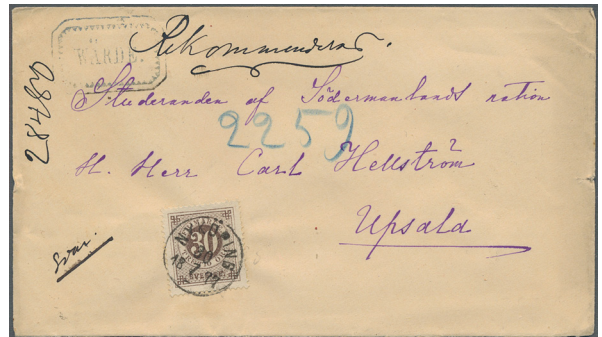 WARDE.
Rekommenderas.
28480
Studeranden af Södermanlands nation
2259
H. Herr Carl Hellström
Upsala
Svar.
NYKÖPING
20
7
18
30